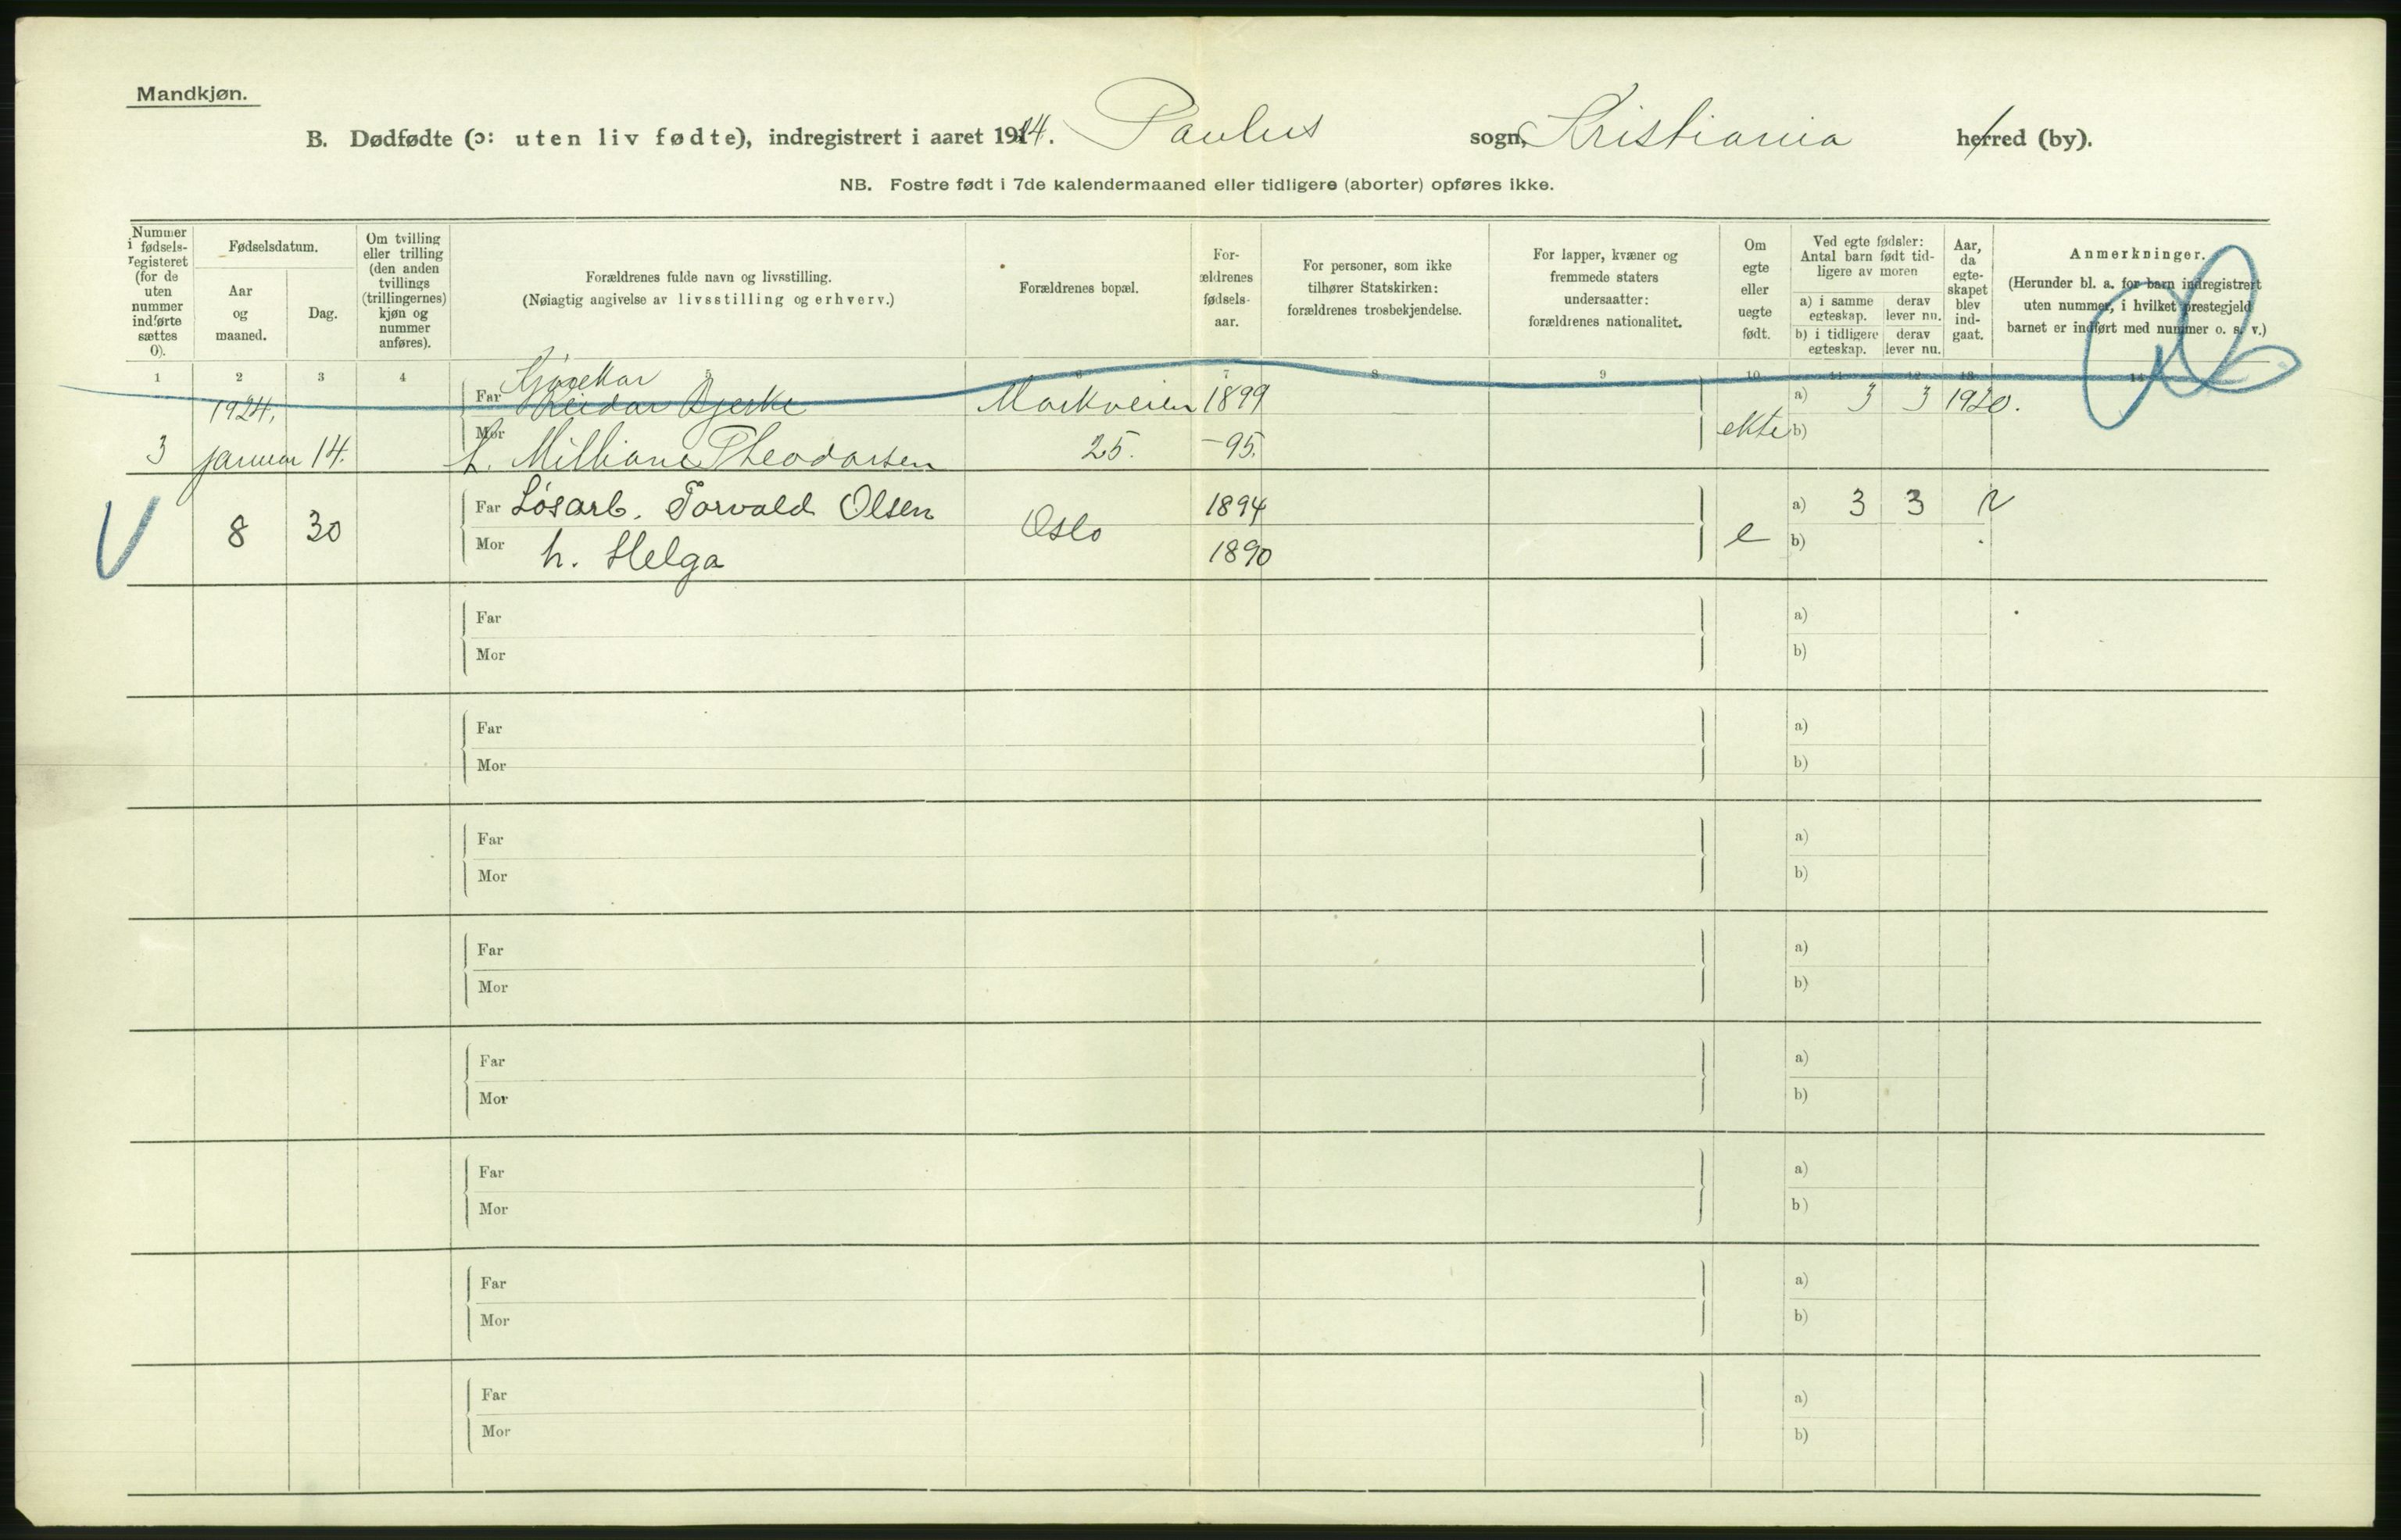 Mandkjøn.
B. Dødfødte (ɔ: uten liv fødte), indregistrert i aaret 1924. Paulus sogn, Kristiania herred (by).
NB. Fostre født i 7de kalendermaaned eller tidligere (aborter) opføres ikke.
Nummer i fødselsregisteret (for de uten nummer indførte sættes 0).
Fødselsdatum.
Aar og maaned.
Dag.
Om tvilling eller trilling (den anden tvillings (trillingernes) kjøn og nummer anføres).
Forældrenes fulde navn og livsstilling.
(Nøiagtig angivelse av livsstilling og erhverv.)
Forældrenes bopæl.
Forældrenes fødselsaar.
For personer, som ikke tilhører Statskirken: forældrenes trosbekjendelse.
For lapper, kvæner og fremmede staters undersaatter: forældrenes nationalitet.
Om egte eller uegte født.
Ved egte fødsler: Antal barn født tidligere av moren
a) i samme egteskap. derav lever nu.
b) i tidligere egteskap. derav lever nu.
Aar, da egteskapet blev indgaat.
Anmerkninger.
(Herunder bl. a. for barn indregistrert uten nummer, i hvilket prestegjeld barnet er indført med nummer o. s. v.)
1 2 3 4 5 6 7 8 9 10 11 12 13 14
1924. Far Reidar Bjerke Markveien 1899 a) 3 3 1920.
3 januar 14. Mor h. Milliane Theodorsen 25. -95. ekte b)
8 30 Far Løsarb. Torvald Olsen Oslo 1894 e a) 3 3
Mor h. Helga 1890 b)
Far a)
Mor b)
Far a)
Mor b)
Far a)
Mor b)
Far a)
Mor b)
Far a)
Mor b)
Far a)
Mor b)
Far a)
Mor b)
Far a)
Mor b)